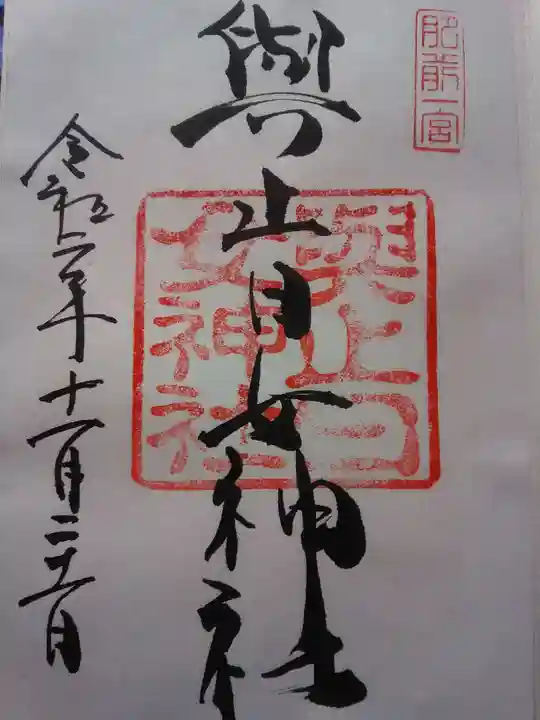 肥前一宮
與止日女神社
與止日女神社
令和二年十一月二十一日